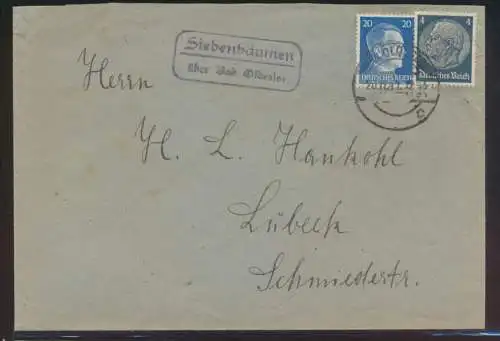 Siebenbäumen
über Bad Oldesloe
20 20
DEUTSCHES REICH
4 4
Deutsches Reich
c
Herrn
H. L. Hankohl
Lübeck
Schmiedestr.